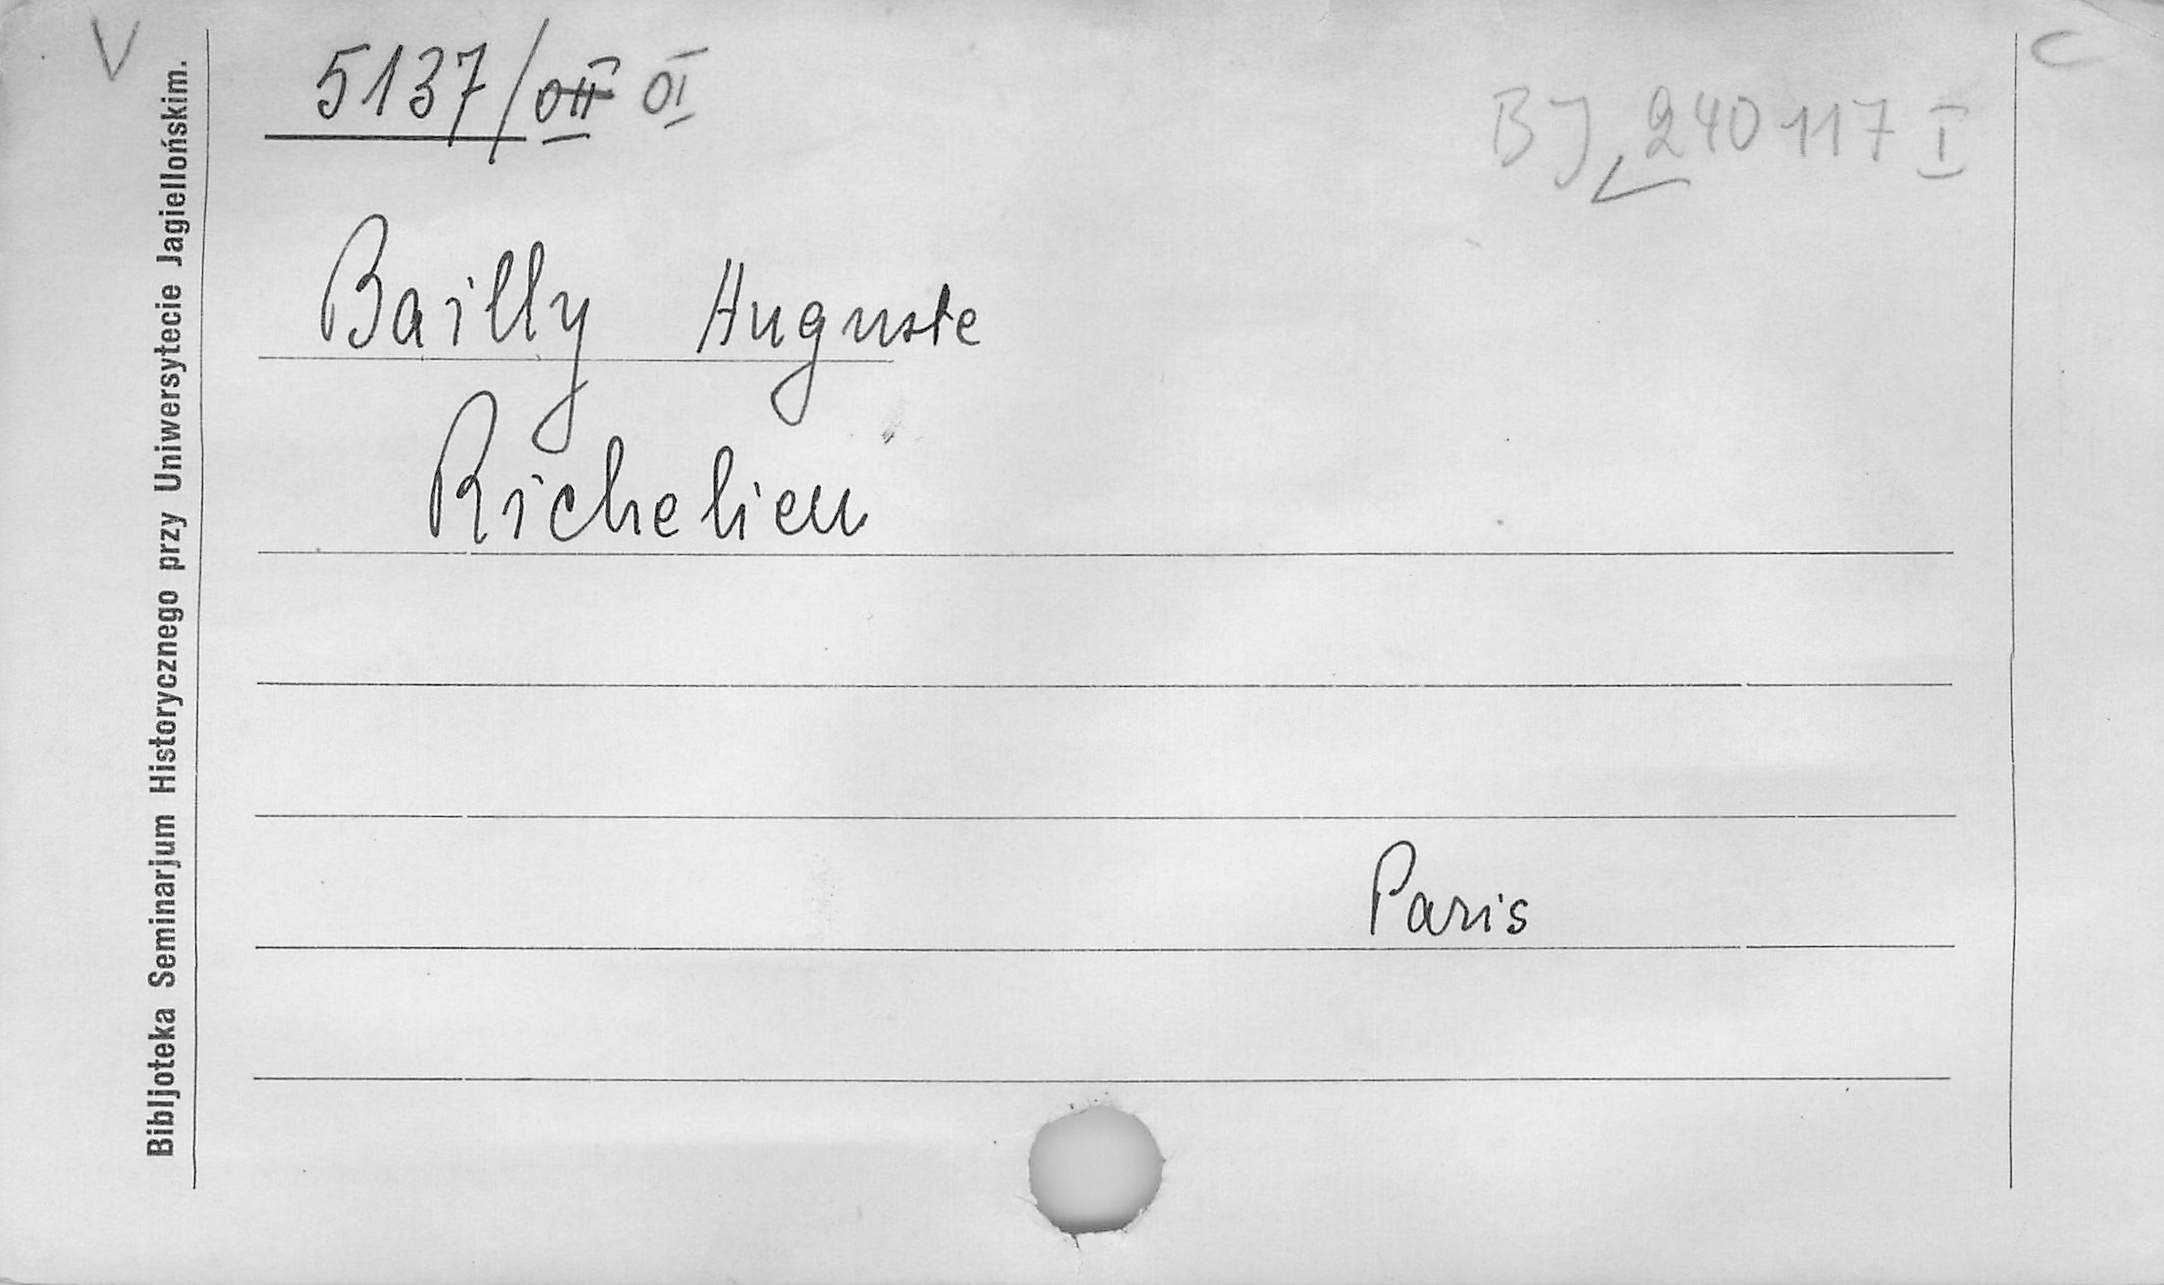 V
5137/OII OI
C
BJ 240117 I
Bailly Auguste
Richelieu
Paris
Bibljoteka Seminarjum Historycznego przy Uniwersytecie Jagiellońskim.